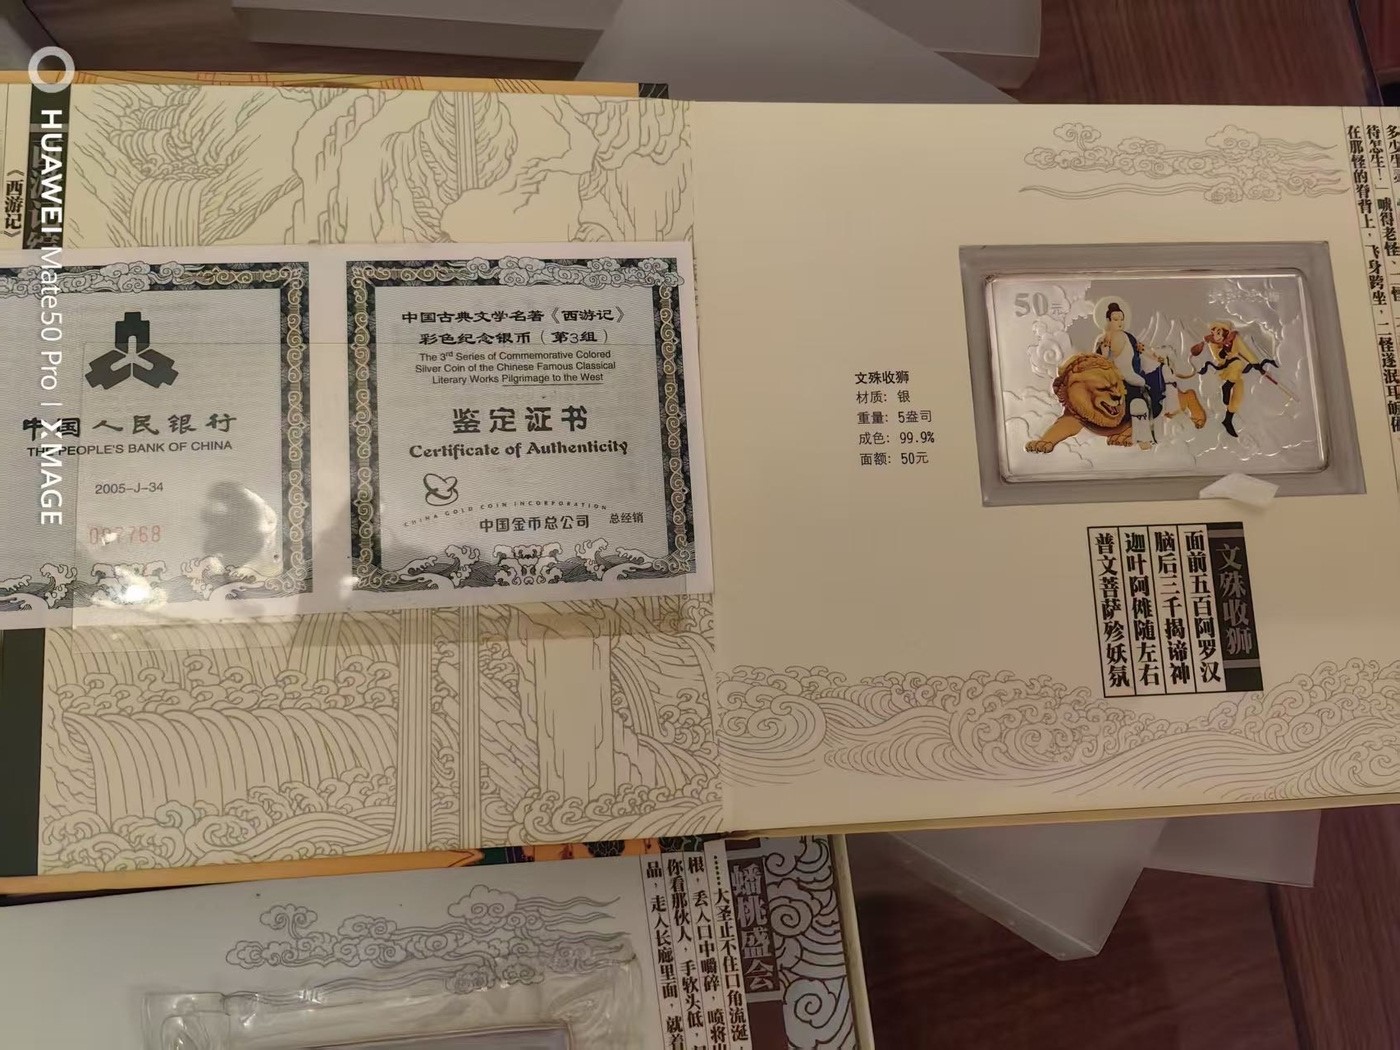 HUAWEI Mate50 Pro | XMAGE
《西游记》
中国人民银行
THE PEOPLE'S BANK OF CHINA
2005-J-34
中国古典文学名著《西游记》
彩色纪念银币（第3组）
The 3rd Series of Commemorative Colored
Silver Coin of the Chinese Famous Classical
Literary Works Pilgrimage to the West
鉴定证书
Certificate of Authenticity
CHINA GOLD COIN INCORPORATION
中国金币总公司 总经销
文殊收狮
材质：银
重量：5盎司
成色：99.9%
面额：50元
50元
文殊收狮
面前五百阿罗汉
脑后三千揭谛神
迦叶阿傩随左右
普文菩萨殄妖氛
待怎生！
在那怪的脊背上，飞身跨坐，二怪遂泯耳
蟠桃盛会
……大圣止不住口角流涎，
根，丢入口中嚼碎，喷将出
你看那伙人，手软头低，
品，走入长廊里面，就着